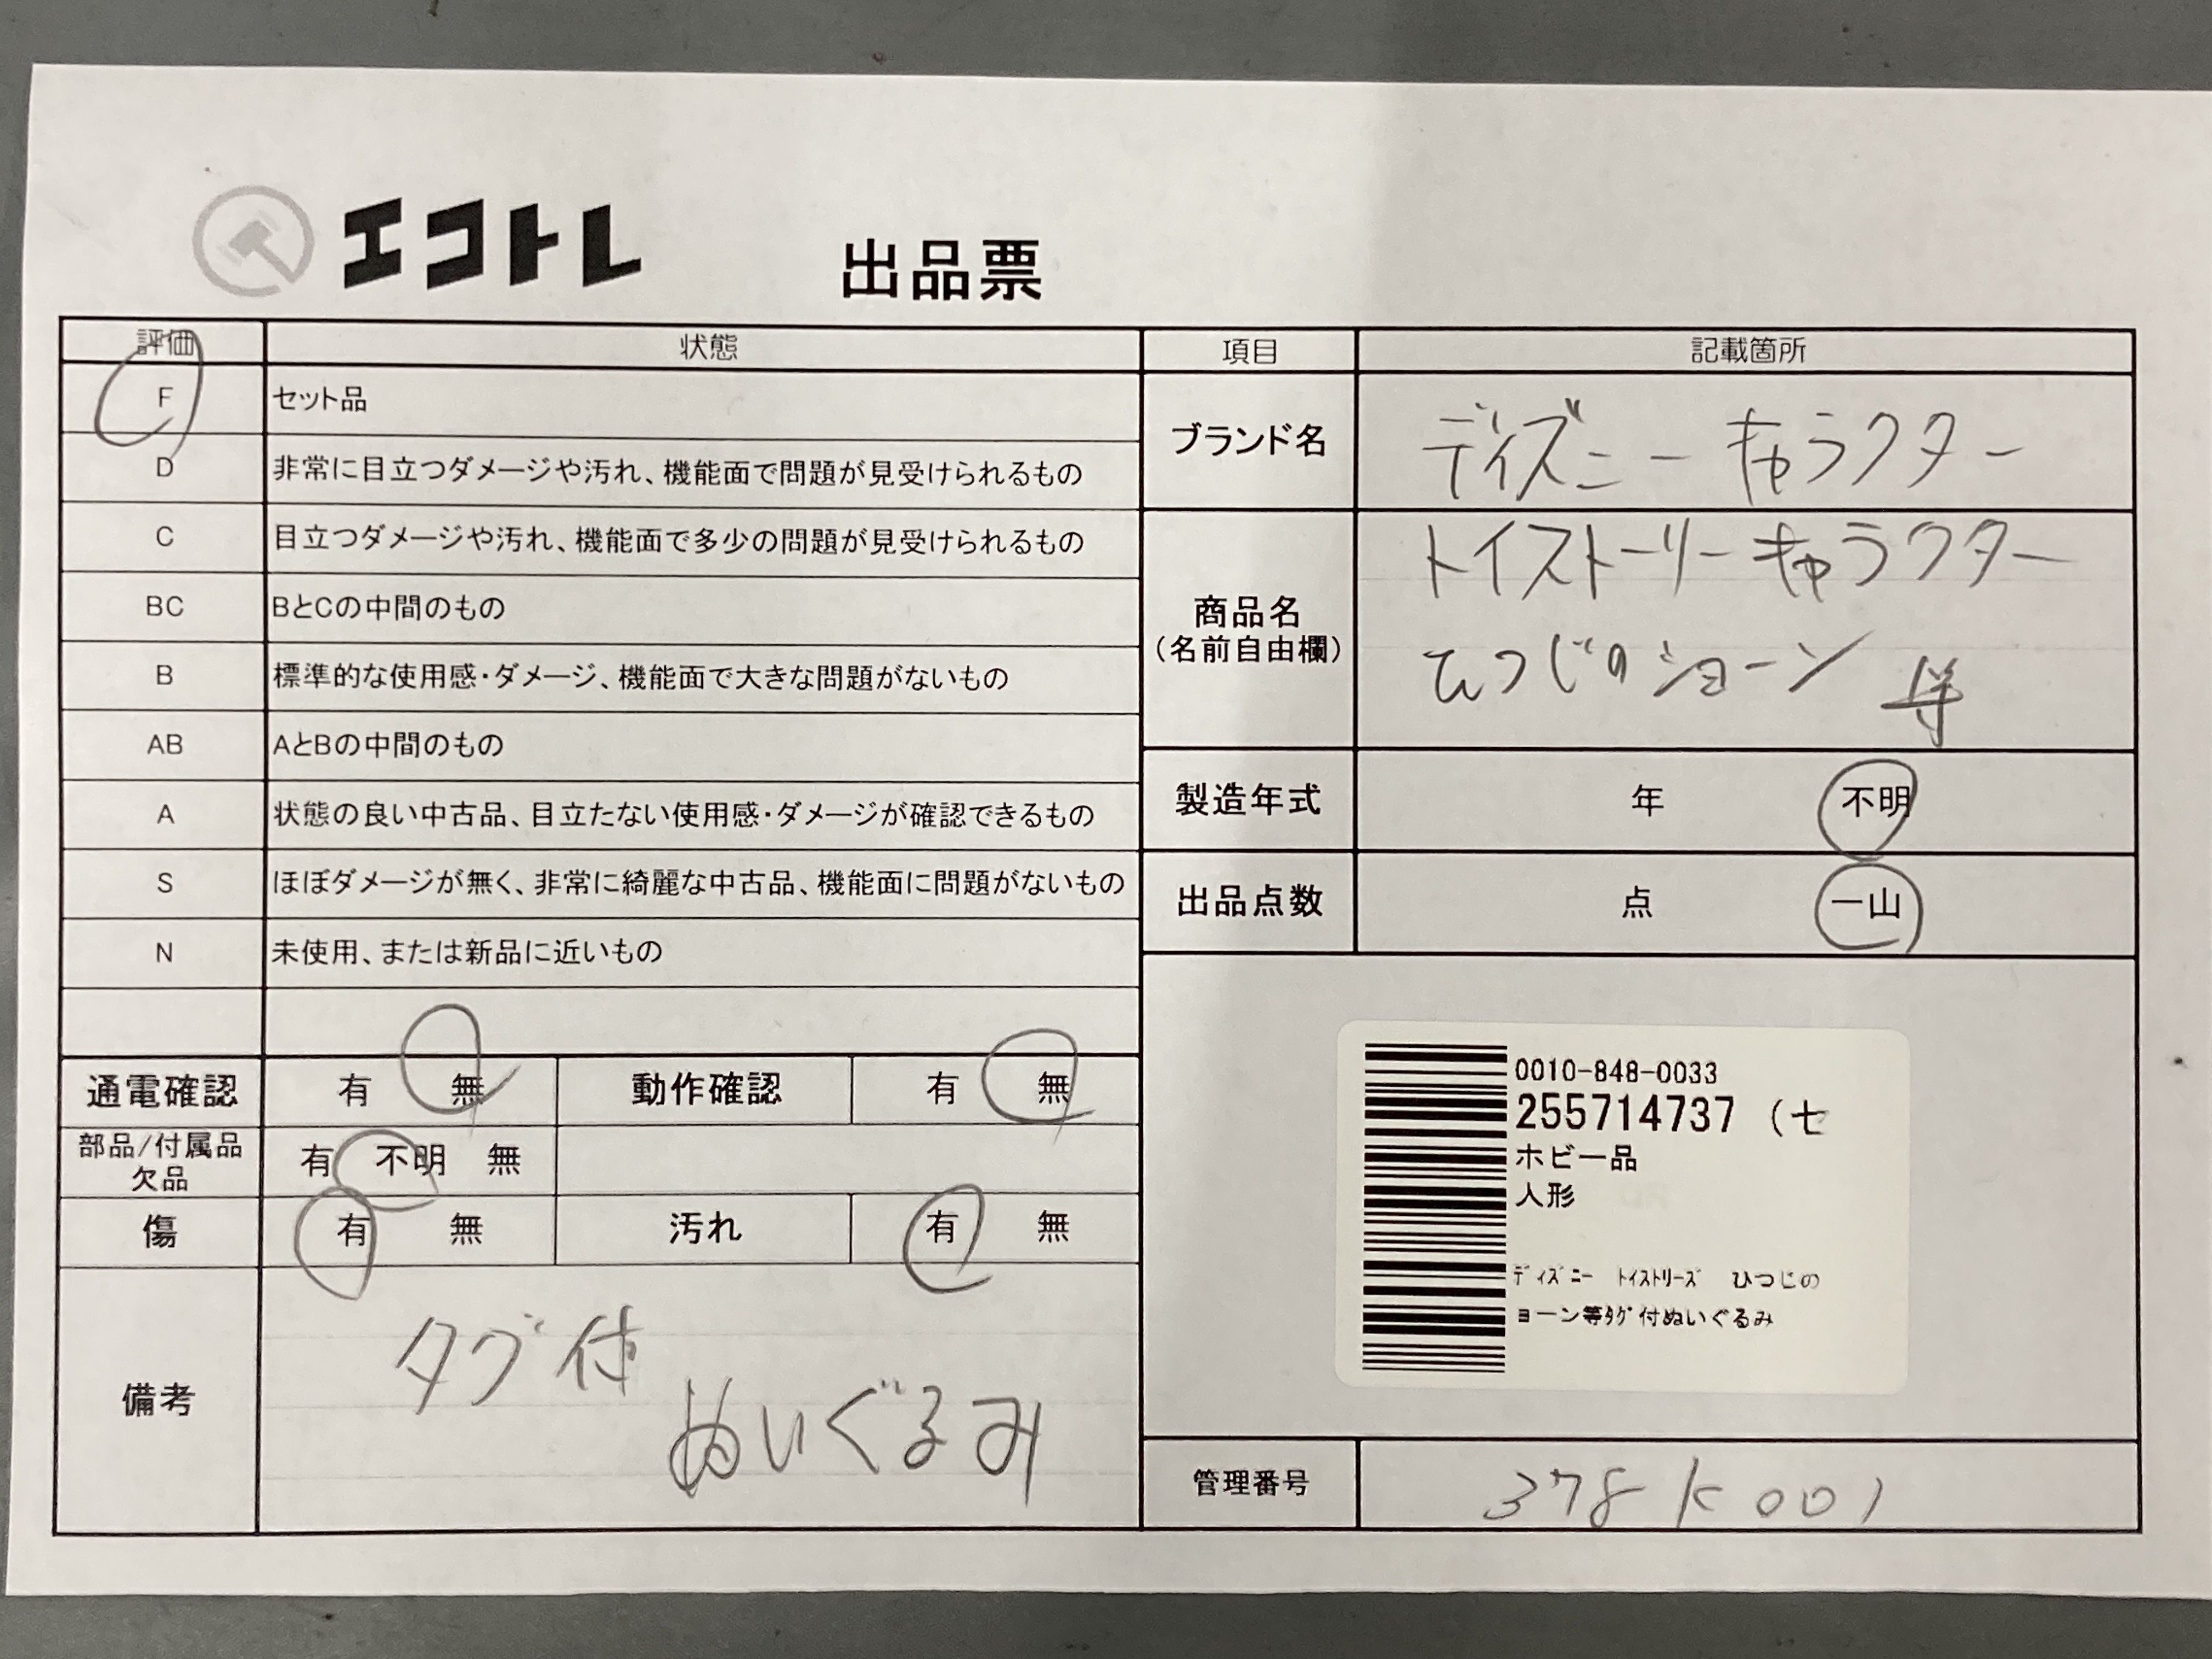 エコトレ
出品票
評価 状態
F セット品
D 非常に目立つダメージや汚れ、機能面で問題が見受けられるもの
C 目立つダメージや汚れ、機能面で多少の問題が見受けられるもの
BC BとCの中間のもの
B 標準的な使用感・ダメージ、機能面で大きな問題がないもの
AB AとBの中間のもの
A 状態の良い中古品、目立たない使用感・ダメージが確認できるもの
S ほぼダメージが無く、非常に綺麗な中古品、機能面に問題がないもの
N 未使用、または新品に近いもの
通電確認 有 無 動作確認 有 無
部品/付属品
欠品 有 不明 無
傷 有 無 汚れ 有 無
備考
タグ付
ぬいぐるみ
項目 記載箇所
ブランド名 ディズニー キャラクター
商品名
(名前自由欄)
トイストーリーキャラクター
ひつじのショーン 等
製造年式 年 不明
出品点数 点 一山
0010-848-0033
255714737 (セ
ホビー品
人形
ディズニー トイストリーズ ひつじの
ョーン等タグ付ぬいぐるみ
管理番号 378K001